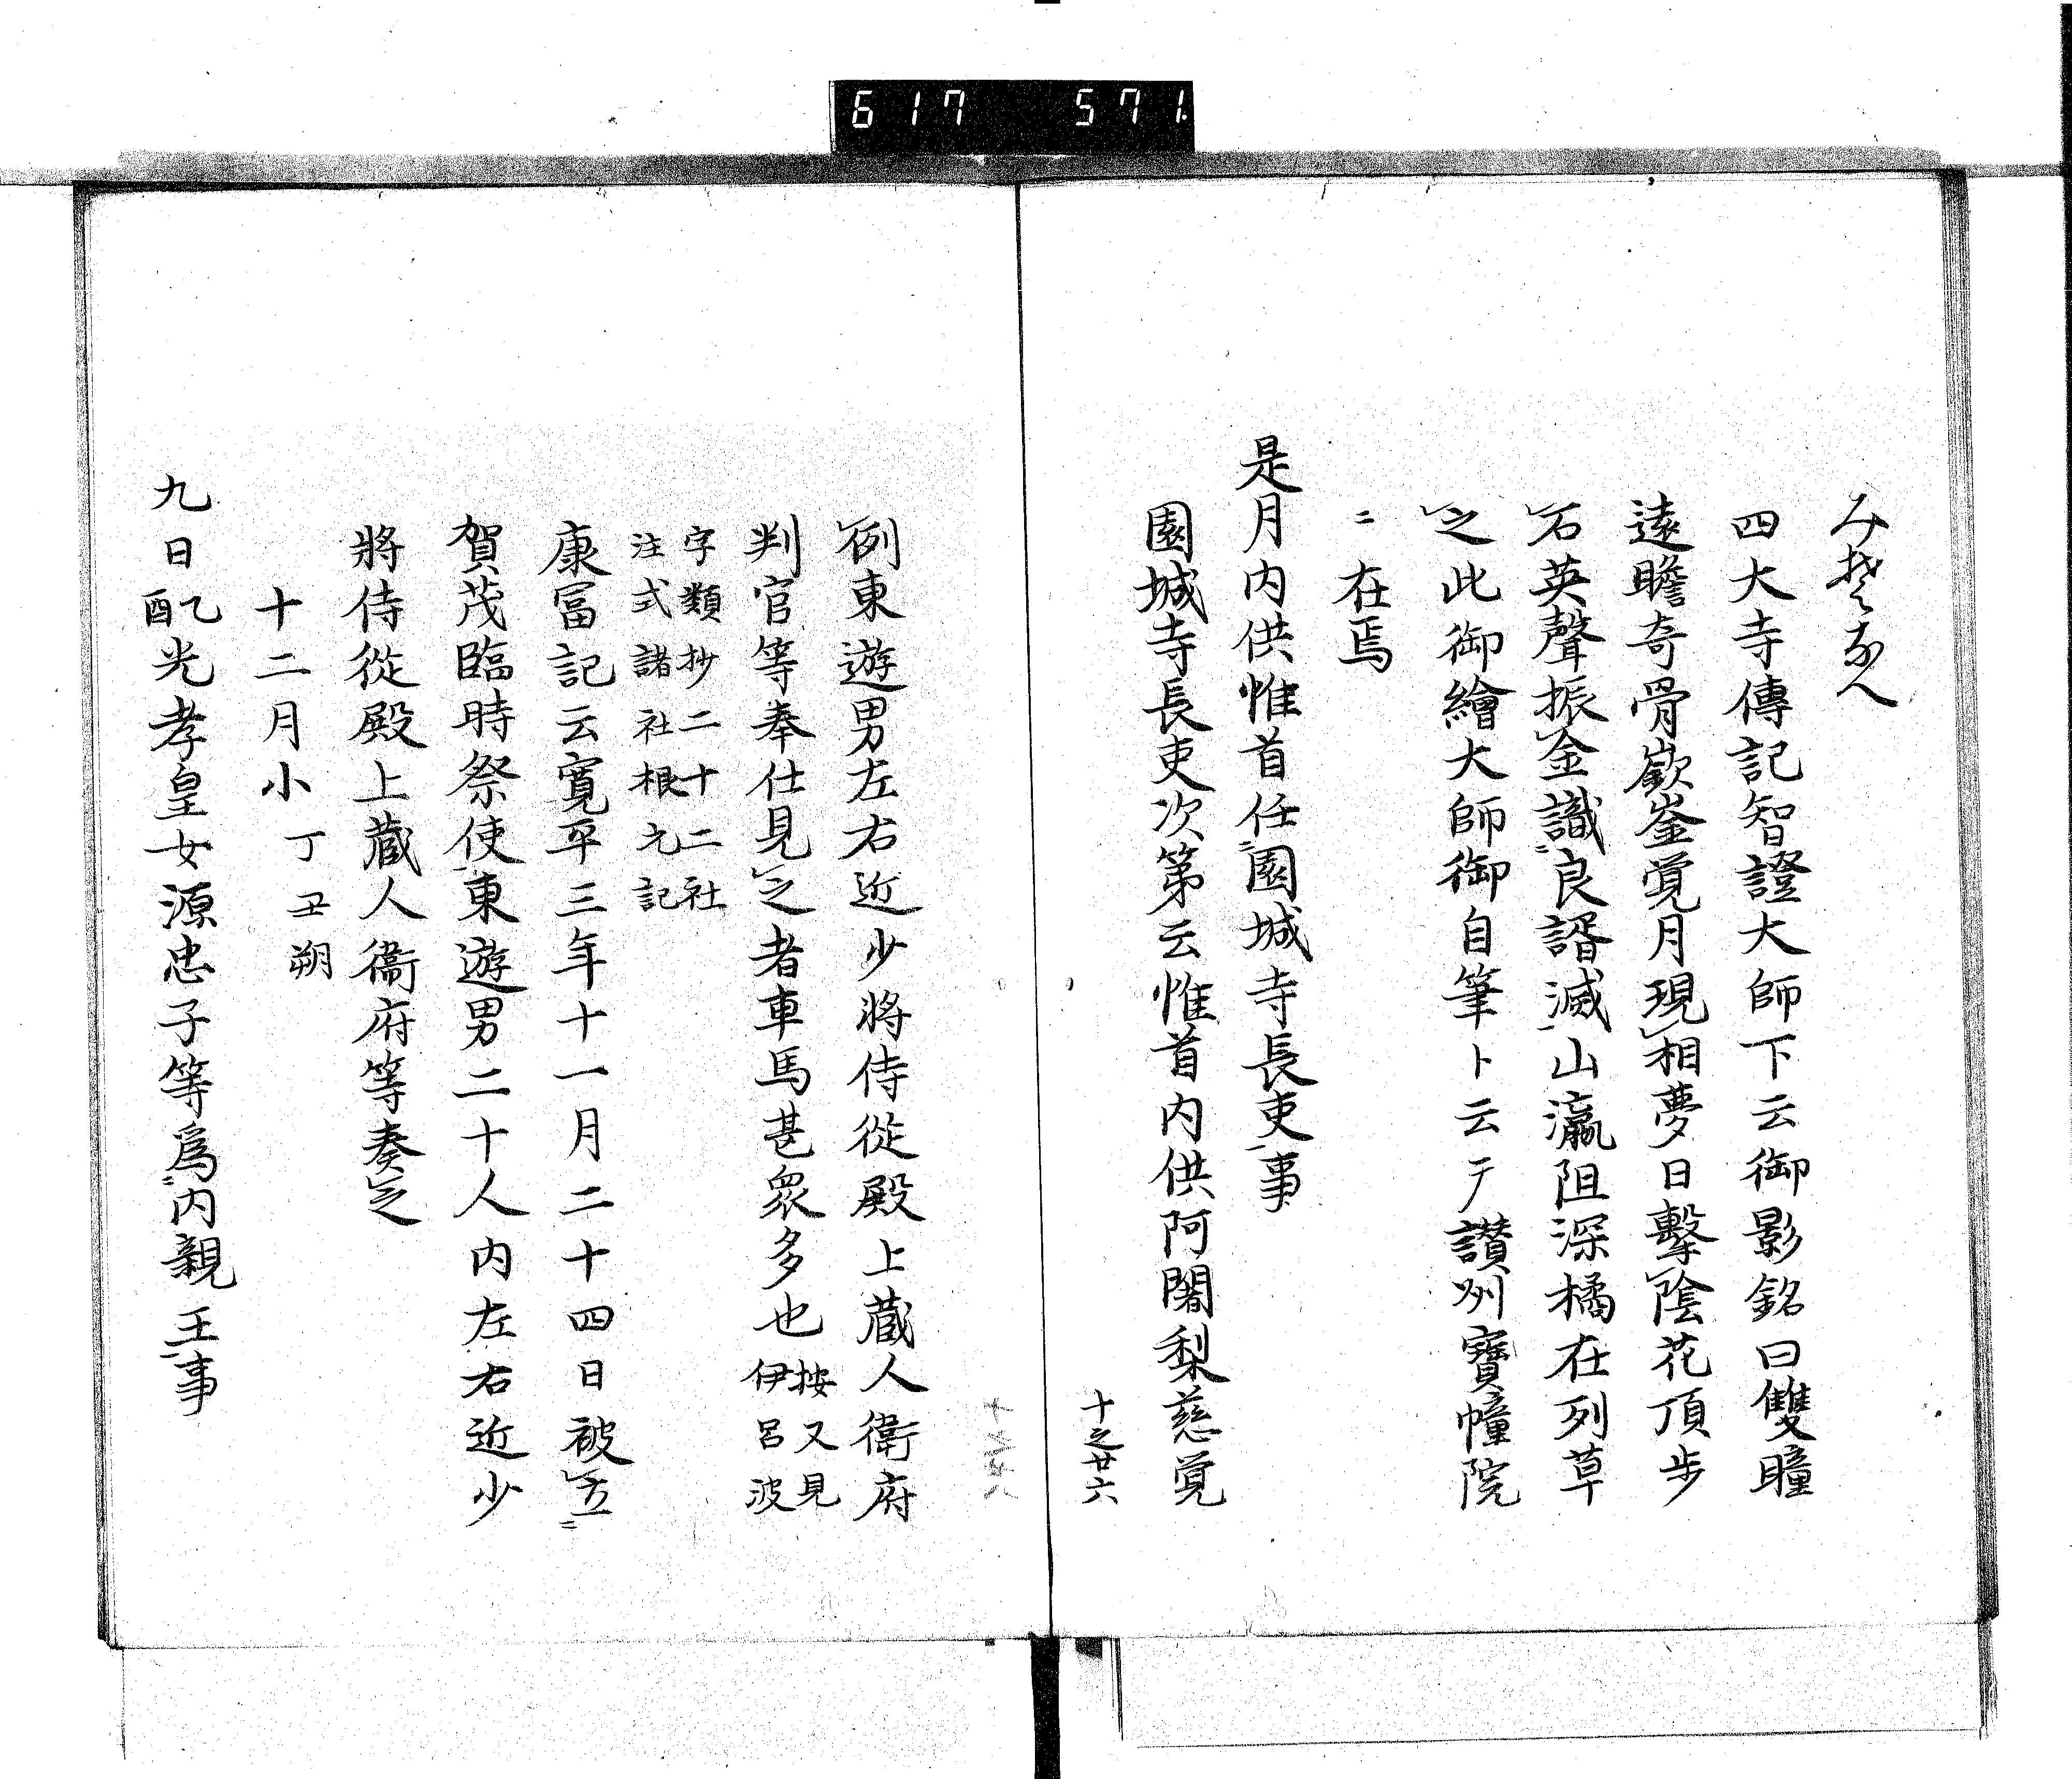 617 571.
みそなへ
四大寺傳記智證大師下云御影銘曰雙瞳
遠瞻奇骨嶔崟覚月現㆑相夢日擊㆑陰花頂歩
㆑石英聲振㆓金識㆒良諝滅㆒山瀛阻深橘在列草
㆑之此御繪大師御自筆ト云テ讃州寶幢院
ニ在焉
是月内供惟首任㆓園城寺長吏㆒事
園城寺長吏次第云惟首内供阿闍梨慈覚
十之廿六
㆑例東遊男左右近少將侍從殿上蔵人衛府
判官等奉仕見㆑之者車馬甚衆多也按又見
伊呂波
字類抄二十二社
注式諸社根元記
康冨記云寛平三年十一月二十四日被㆑立㆓
賀茂臨時祭使㆒東遊男二十人内左右近少
將侍從殿上蔵人衞府等奏㆑之
十二月小丁丑朔
九日乙酉光孝皇女源忠子等為㆓内親王㆒事